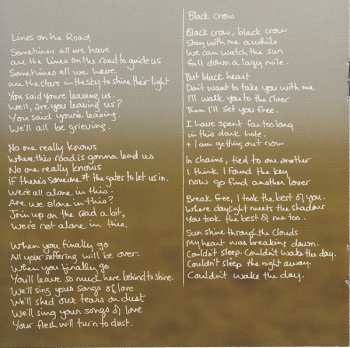 Lines on the Road
Sometimes all we have
are the lines on the road to guide us
Sometimes all we have
are the stars in the sky to shine their light
You said you're leaving us
Well, are you leaving us?
You said you're leaving
We'll all be grieving.
No one really knows
where this road is gonna lead us
No one really knows
if there's someone at the gates to let us in.
We're all alone in this.
Are we alone in this?
Join up on the road a lot,
We're not alone in this.
When you finally go
All your suffering will be over.
When you finally go
You'll leave so much here behind to shine.
We'll sing your songs of love
We'll shed our tears on dust
We'll sing your songs of love
Your flesh will turn to dust.
Black Crow
Black crow, black crow
Stay with me awhile
We can watch the sun
fall down a lazy mile.
But black heart
Don't want to take you with me
I'll walk you to the river
Then I'll set you free.
I have spent far too long
in this dark hole.
+ I am getting out now
In chains, tied to one another
I think I found the key
now go find another lover
Break free, I took the best of you.
Where daylight meets the shadow
You took the best of me too.
Sun shine through the clouds
My heart was breaking down.
Couldn't sleep. Couldn't wake the day.
Couldn't sleep the night away.
Couldn't wake the day.